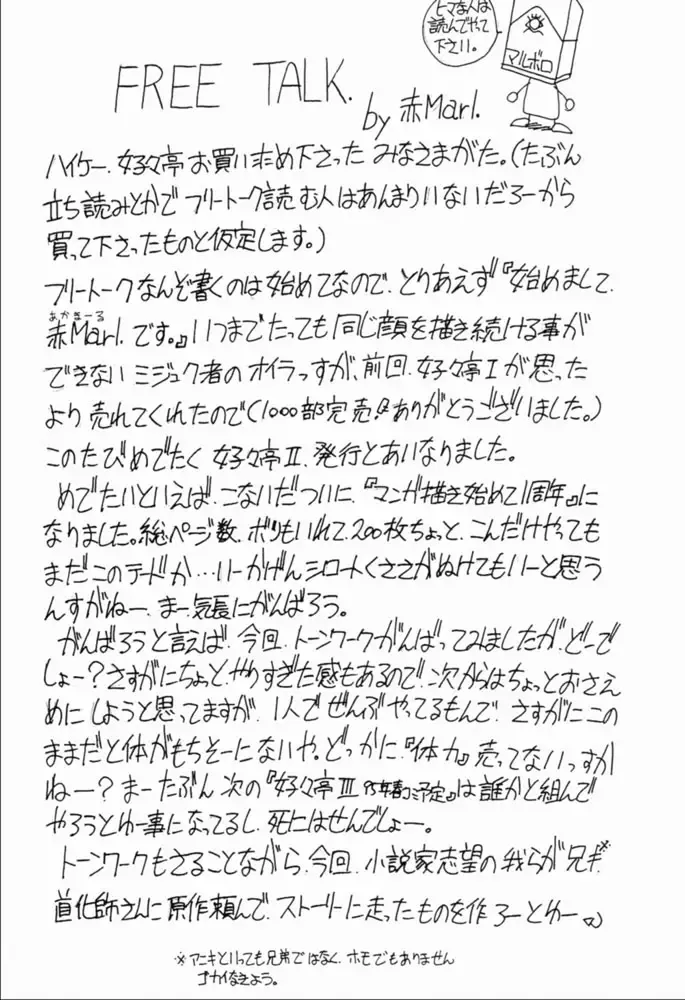 ヒマな人は
読んでやって
下さい。
マルボロ
FREE TALK.
by 赤Marl.
ハイケー、好々亭お買い求め下さったみなさまがた。(たぶん
立ち読みとかでフリートーク読む人はあんまりいないだろーから
買って下さったものと仮定します。)
フリートークなんぞ書くのは始めてなので、とりあえず『始めまして、
あかまーる
赤Marl.です。』いつまでたっても同じ顔を描き続ける事が
できないミジュク者のオイラっすが、前回、好々亭Ⅰが思った
より売れてくれたので(1000部完売!!ありがとうございました。)
このたびめでたく好々亭Ⅱ、発行とあいなりました。
めでたいといえば、こないだついに、『マンガ描き始めて1周年』に
なりました。総ページ数、ボツもいれて、200枚ちょっと、こんだけやっても
まだこのテードか…いーかげんシロートくささがぬけてもいーと思う
んすがねー、まー気長にがんばろう。
がんばろうと言えば、今回、トーンワークがんばってみましたが、どーで
しょー?さすがにちょっとやりすぎた感もあるので、次からはちょっとおさえ
めにしようと思ってますが、1人でぜんぶやってるもんで、さすがにこの
ままだと体がもちそーにないや。どっかに、『体力』売ってないっすか
ねー?まーたぶん次の『好々亭Ⅲ 95年春予定』は誰かと組んで
やろうとゆー事になってるし、死にはせんでしょー。
トーンワークもさることながら、今回、小説家志望の我らが兄キ※
道化師さんに原作頼んで、ストーリーに走ったものを作ろーとゆー
※アニキといっても兄弟ではなく、ホモでもありません
ゴカイなきよう。